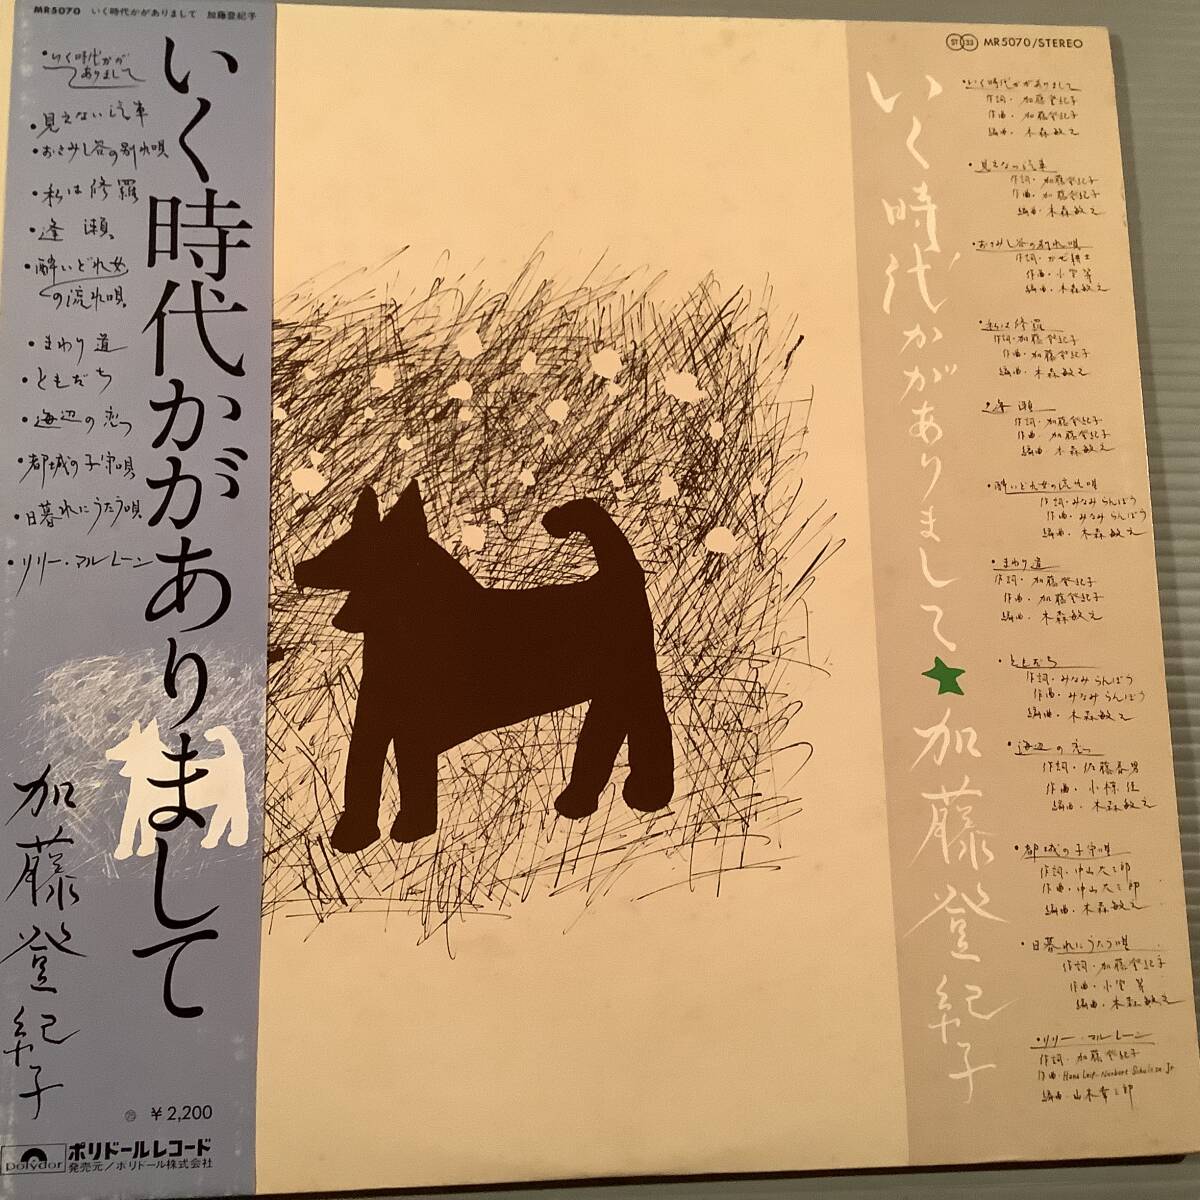 MR5070 いく時代かがありまして 加藤登紀子
いく時代かがありまして
・いく時代かが
ありまして
・見えない汽車
・おさみし谷の別れ唄
・私は修羅
・逢瀬
・酔いどれ女
の流れ唄
・まわり道
・ともだち
・海辺の恋
・都城の子守唄
・日暮れにうたう唄
・リリー・マルレーン
加藤登紀子
¥2,200
polydor
ポリドールレコード
発売元/ポリドール株式会社
ST 33 MR5070/STEREO
いく時代かがありまして★加藤登紀子
・いく時代かがありまして
作詞・加藤登紀子
作曲・加藤登紀子
編曲・木森敏之
・見えない汽車
作詞・加藤登紀子
作曲・加藤登紀子
編曲・木森敏之
・おさみし谷の別れ唄
作詞・かぜ耕士
作曲・小室等
編曲・木森敏之
・私は修羅
作詞・加藤登紀子
作曲・加藤登紀子
編曲・木森敏之
・逢瀬
作詞・加藤登紀子
作曲・加藤登紀子
編曲・木森敏之
・酔いどれ女の流れ唄
作詞・みなみらんぼう
作曲・みなみらんぼう
編曲・木森敏之
・まわり道
作詞・加藤登紀子
作曲・加藤登紀子
編曲・木森敏之
・ともだち
作詞・みなみらんぼう
作曲・みなみらんぼう
編曲・木森敏之
・海辺の恋
作詞・佐藤春男
作曲・小椋佳
編曲・木森敏之
・都城の子守唄
作詞・中山大三郎
作曲・中山大三郎
編曲・木森敏之
・日暮れにうたう唄
作詞・加藤登紀子
作曲・小室等
編曲・木森敏之
・リリー・マルレーン
作詞・加藤登紀子
作曲・Hans Leip-Norbert Schultze Jr
編曲・山木幸三郎